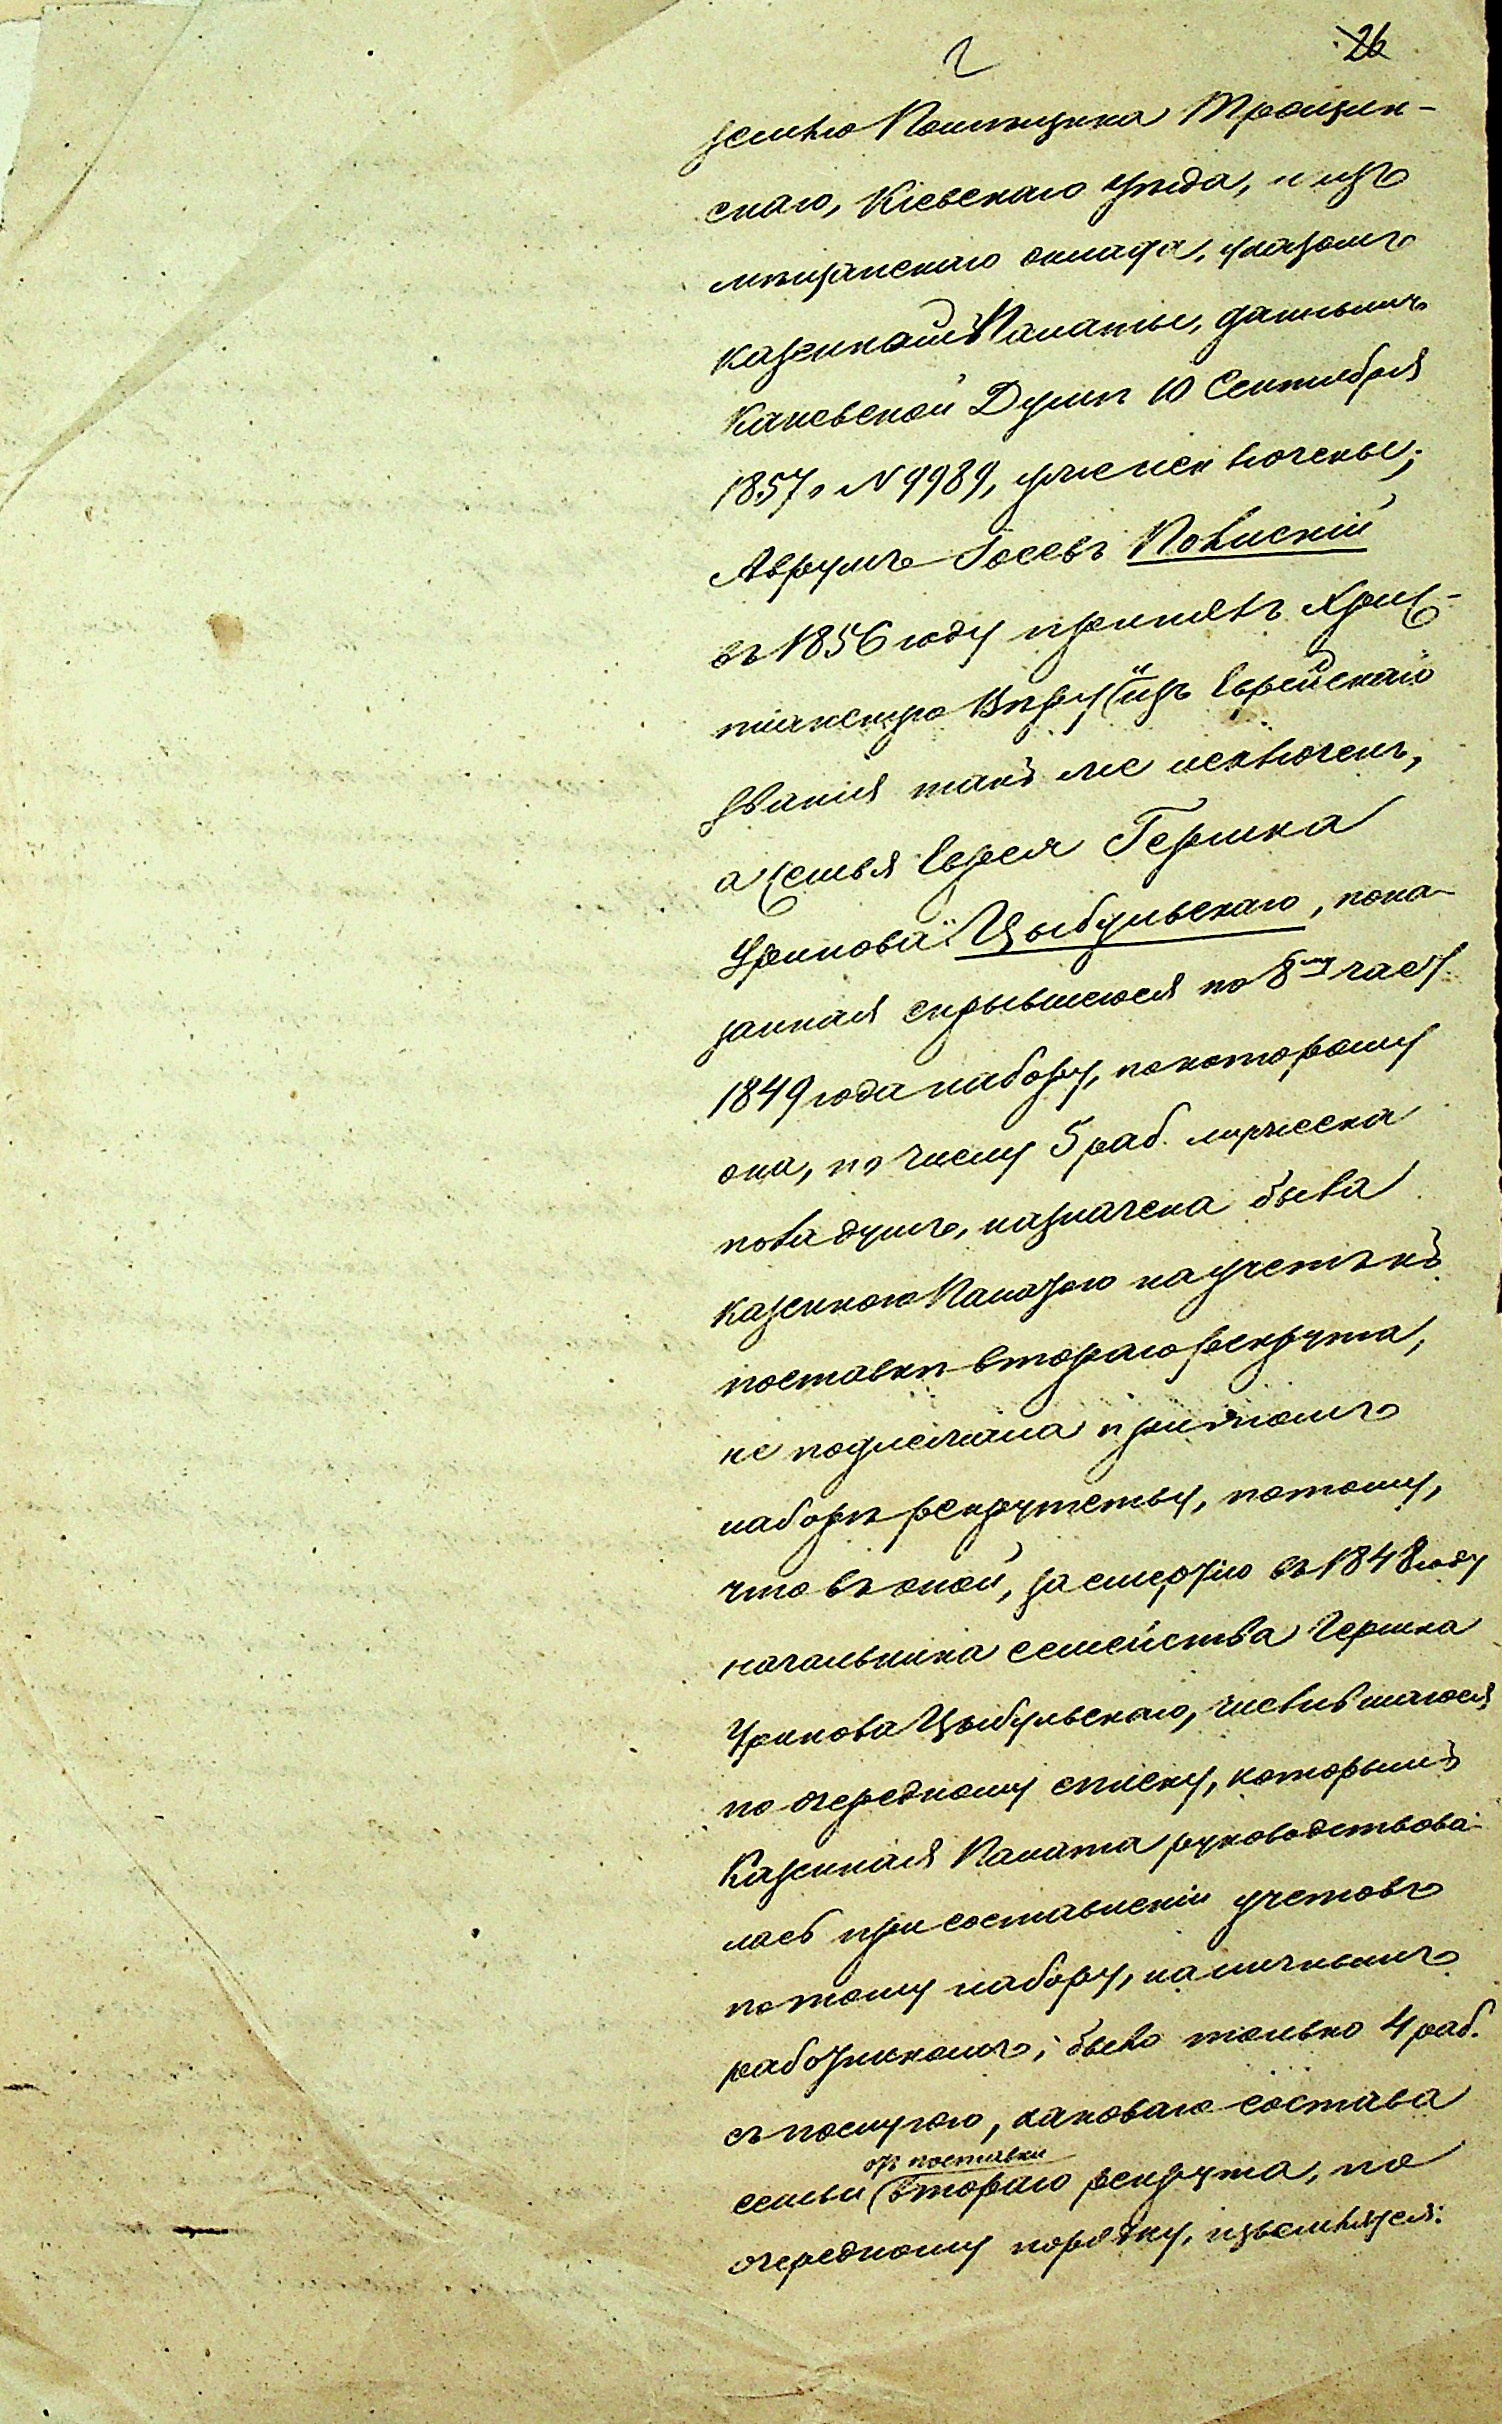 2
26
землю Помѣщика Трощин-
скаго, Кіевскаго уѣзда, и изъ
мѣщанскаго оклада, указомъ
Казенной Палаты, даннымъ
Каневской Думѣ 10 Сентября
1857 г. N 9989, уже исключены;
Аврумъ-Іосевъ Польскій
въ 1856 году принялъ Хрис-
тіанскую Вѣру и изъ Еврейскаго
званія такъ же исключенъ,
а семья Еврея Гершка
Уринова Цыбульскаго, пока-
занная скрывшеюся по 8му част.
1849 года набору, по которому
она, по числу 5 раб. мужеска
пола душъ, назначена была
Казенною Палатою на участкѣ къ
поставкѣ втораго рекрута,
не подлежала при томъ
наборѣ рекрутству, потому,
что въ оной, за смертію въ 1848 году
начальника семейства Гершка
Уринова Цыбульскаго, числившагося
по очередному списку, которымъ
Казенная Палата руководствова-
лась при составленіи учетовъ
по тому набору, наличнымъ
работникомъ, было только 4 раб.
съ послугою, каковаго состава
отъ поставки
семьи втораго рекрута, по
очередному порядку, изъемлются.